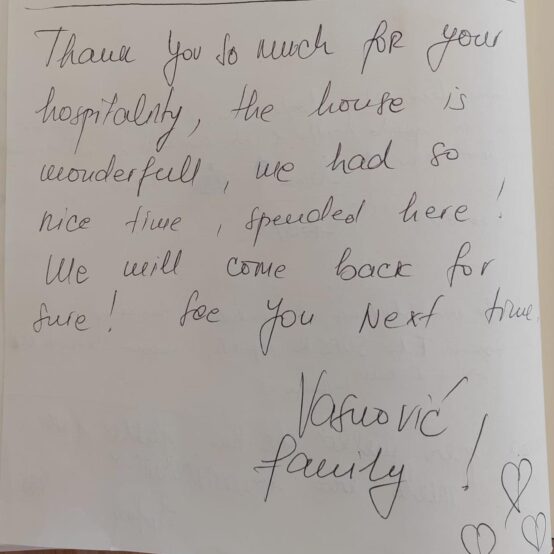 Thank you so much for your
hospitality, the house is
wonderfull, we had so
nice time, spended here!
We will come back for
sure! See you Next time.
family!